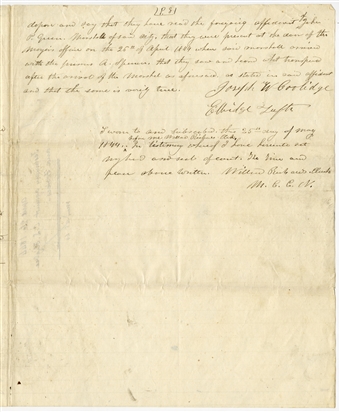 depose and say that they have read the foregoing affidavit of John
P. Green Marshall of said city; that they were present at the door of the
Mayor's office on the 25th of April 1844 when said marshall arrived
with the prisoner A. Spencer that they saw and heard what transpired
after the arrival of the Marshal as aforesaid as stated in said affidavit
and that the same is verily true.
Joseph W Coolidge
Elbridge Tufts
Sworn to and subscribed this 25th day of May
1844. In testimony whereof I have hereunto set
my hand and seal of court the time and
place above written. Willard Richards
M. C. C. N.